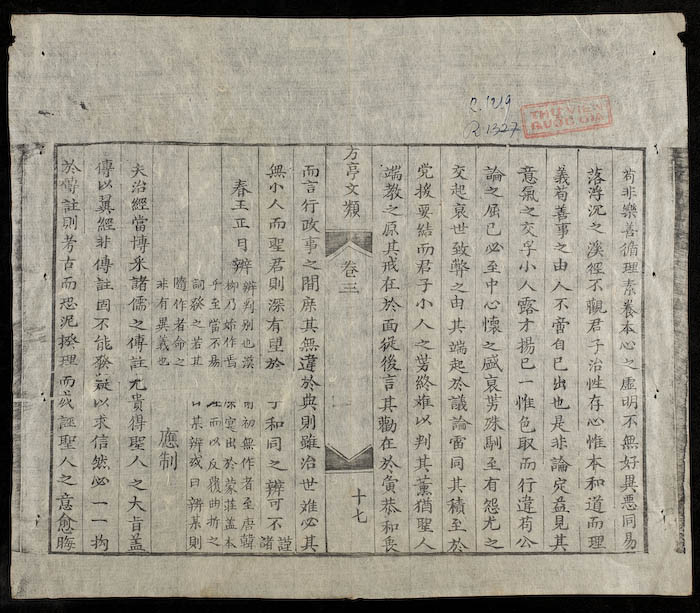 R.1219
R.1327
THƯ VIỆN
QUỐC GIA
苟非樂善循理素養本心之虛明不無好異惡同易
落浮沉之溪徑不觀君子治性存心惟本和道而理
義苟善事之由人不啻自己出也是非論定益見其
意氣之交孚小人露才揚已一惟色取而行違苟公
論之屈已必至中心懷之盛哀劣殊馴至有怨尤之
交起哀世致弊之由其端起於議論雷同其積至於
党援要結而君子小人之劳終難以判其薰猶聖人
端教之原其戒在於面從後言其勸在於寅恭和衷
方亭文類
卷三
十七
而言行政事之間庶其無違於典則雖治世难必其
無小人而聖君則深有望於
丁和同之辨可不
謹
諸
春王正日辨
辨判別也漢
初無作者至唐韓
柳乃始作焉
突出於蒙莊盖本
乎至當不易
而以反覆曲折之
詞發之若其
曰某辨或曰辨某則
隨作者命之
非有異義也
應制
夫治經當博采諸儒之傳註尤貴得聖人之大旨盖
傳以翼經非傳註固不能發疑以求信然必一一拘
於傳註則考古而恐泥揆理而或誣聖人之意愈晦